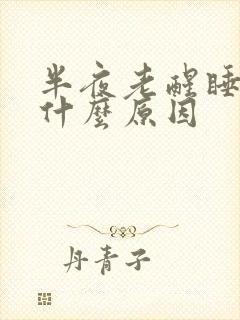 半夜老醒睡
什麼原因
丹青子